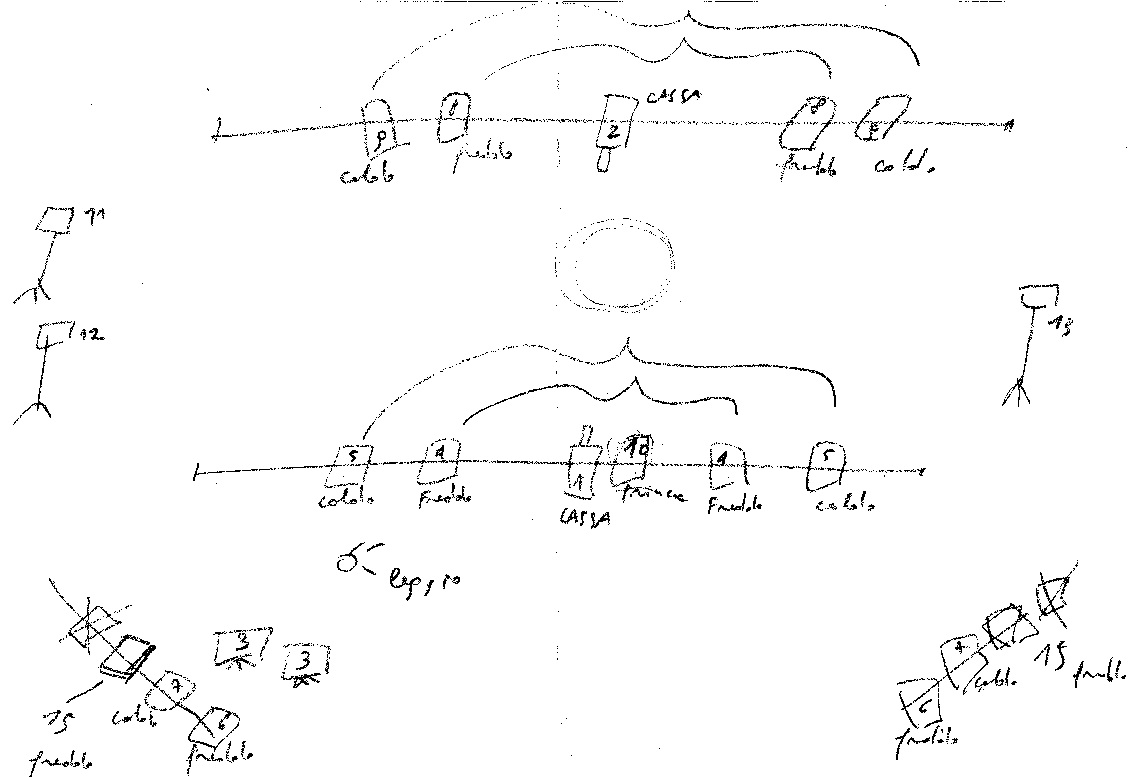 CASSA
8
2
caldo
freddo
freddo
caldo
11
12
13
5
4
1
10
4
5
caldo
Freddo
CASSA
Freddo
caldo
leggio
3
3
7
6
15
caldo
freddo
freddo
6
caldo
15
freddo
freddo